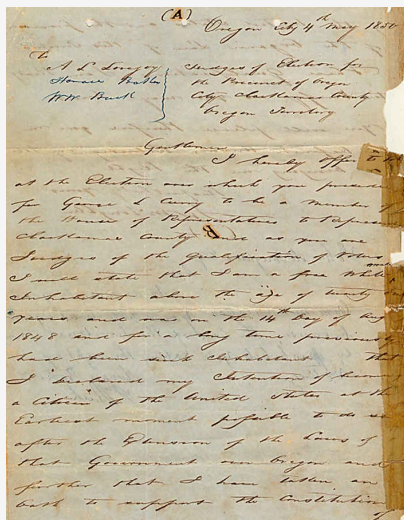 (A)
Oregon City 4th May 1850
To
A L Lovejoy Judges of Election for
Horace the Precinct of Oregon
W W Buck City, Clackamas County
Oregon Territory
Gentlemen
I hereby offer to
at the Election over which you preside
for George L Curry to be a member of
the House of Representatives to represent
Clackamas County and as you are
Judges of the qualification of
I will state that I am a free white
Inhabitant above the age of twenty
years and was on the 14th day of
1848 and for a long time previously
had been such Inhabitant that
I declared my Intention of
a Citizen of the United States at the
Earliest moment possible to do so
after the Extension of the Laws of
that Government over Oregon and
further that I have taken an
oath to support the Constitution
of